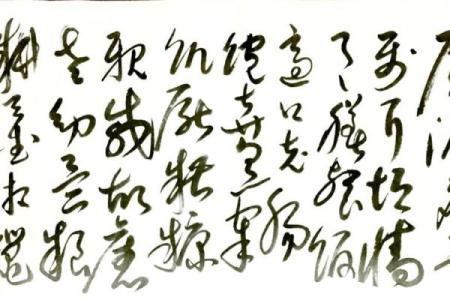 屬耳垣牆
具膳餐飯
適口充腸
飽飫烹宰
飢厭糟糠
親戚故舊
老幼異糧